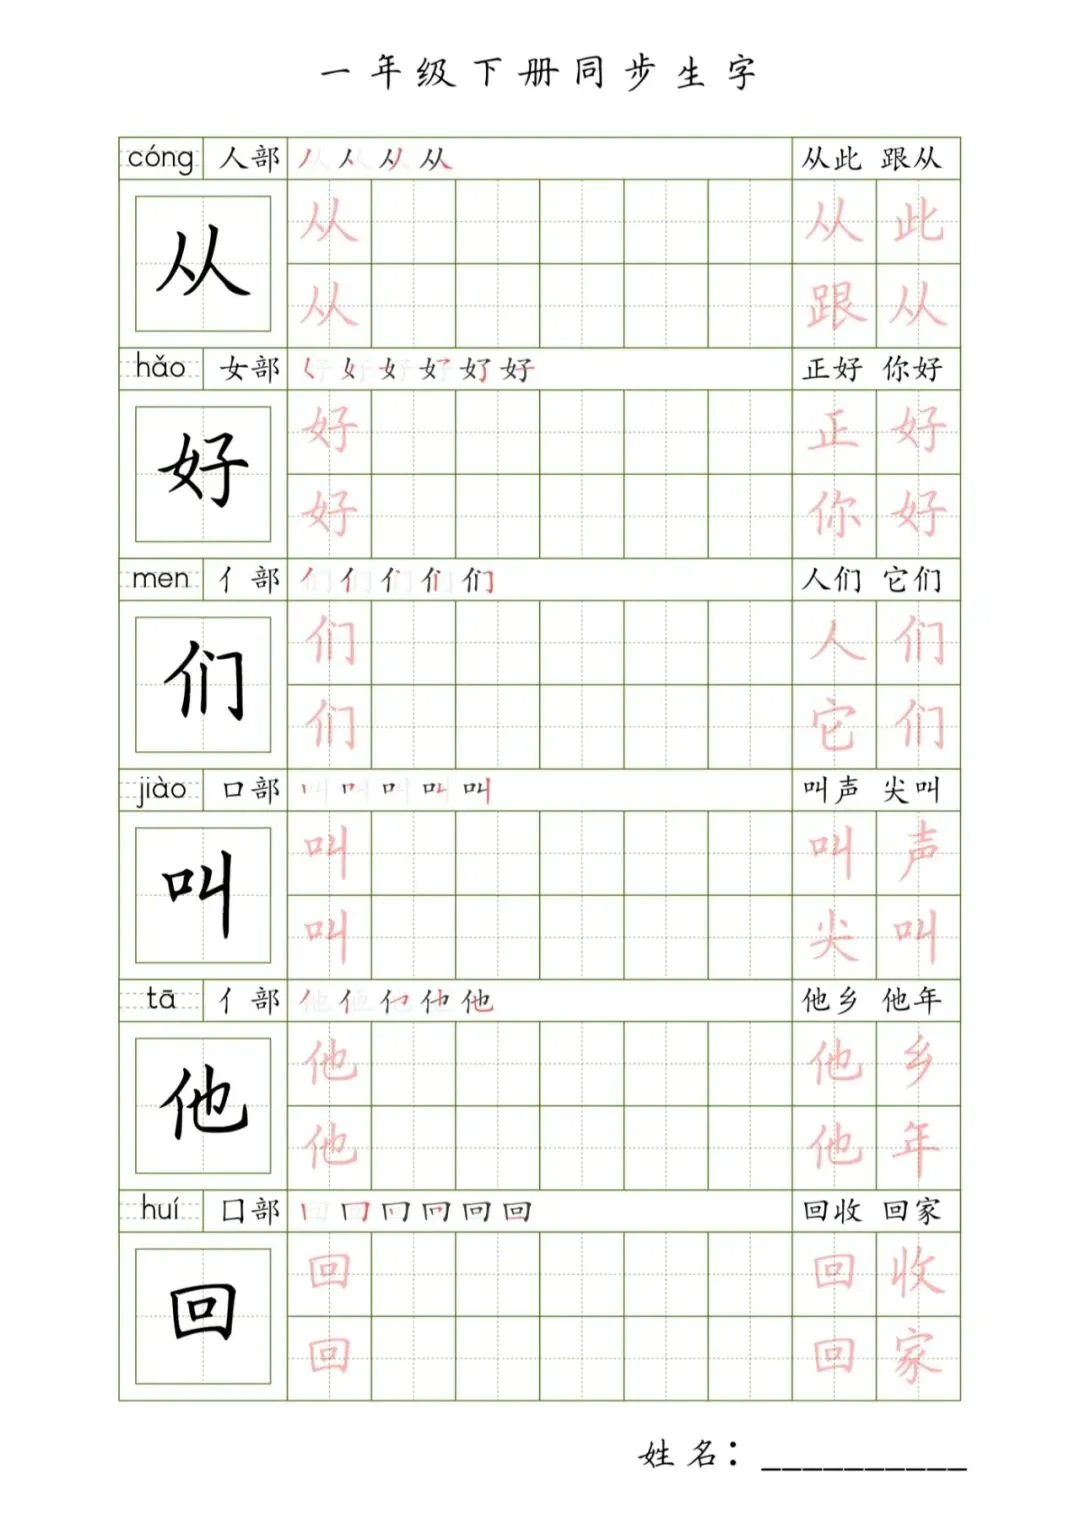 一年级下册同步生字
cóng 人部 丿 人 从 从 从此 跟从
从 从 从 此
从 跟 从
hǎo 女部 女 好 正好 你好
好 好 正 好
好 你 好
men 亻部 丿 亻 们 人们 它们
们 们 人 们
们 它 们
jiào 口部 丨 口 叫 叫声 尖叫
叫 叫 叫 声
叫 尖 叫
tā 亻部 丿 亻 他 他乡 他年
他 他 他 乡
他 他 年
huí 囗部 丨 冂 回 回收 回家
回 回 回 收
回 回 家
姓名：__________